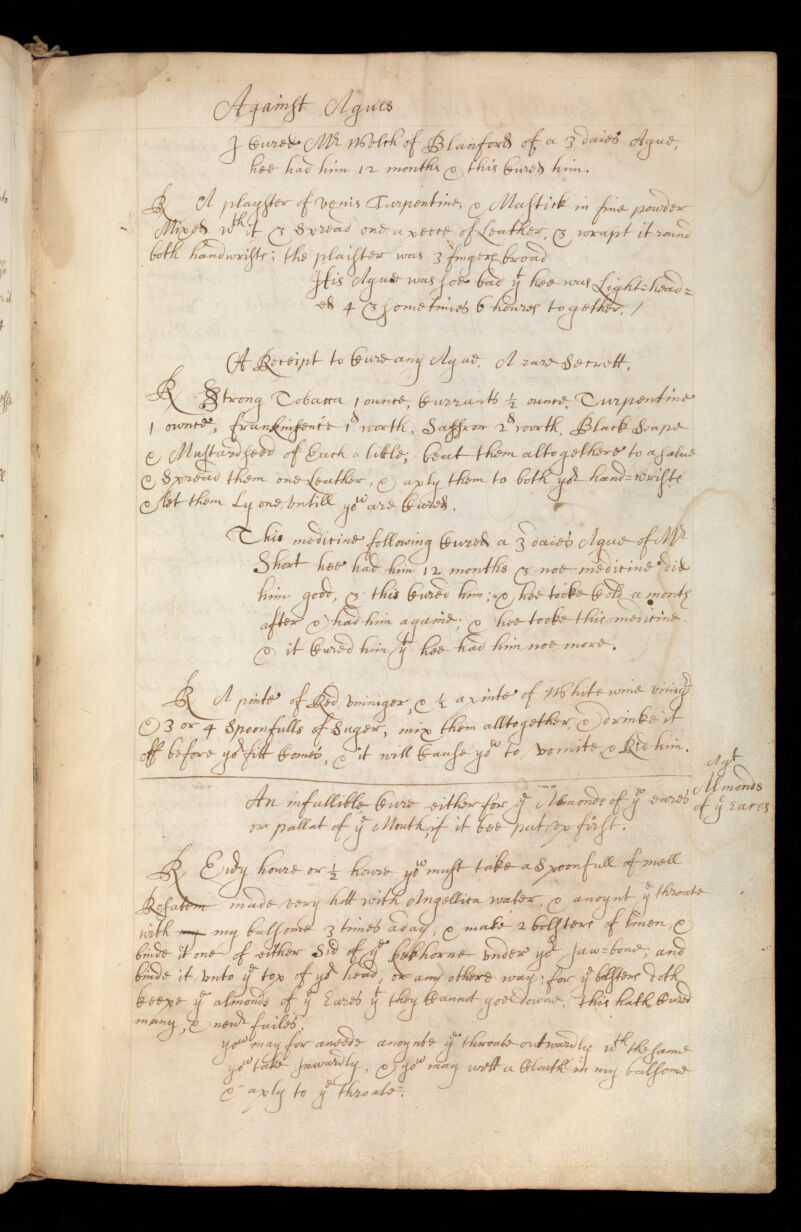 Against Agues
I Cured Mr Welch of Blanford of a 3 daies Ague,
hee had him 12 months & this Cured him.
R A playster of venis Turpentine, & Mastick in fine powder
Mixed wth it & Spread one a peece of Leather, & wrapt it round
both handwrists; the plaister was 3 fingers broad
His Ague was soe bad yt hee was Light=head=
ed 4 & sometimes 6 houres together./
A Receipt to Cure any Ague. A rare Secrett.
R Strong Tobacca 1 ounce, Currants ½ ounce, Turpentine
1 ownce, frankinsence 1d worth, Saffron 2d worth, Black Soape
& Mustardseed of Each a little; beat them altogethere to a salve
& Spread them one Leather, & aply them to both yor hand=wrists
& let them Ly one untill you are Cured.
This medicine following Cured a 3 daies Ague of Mr
Short hee had him 12 months & noe medicine did
him good, & this Cured him; & hee tooke Cold a month
after & had him againe; & hee tooke this medicine
& it Cured him yt hee had him noe more.
R A pinte of Red viniger, & ½ a pinte of White wine vinigr
& 3 or 4 Spoonfulls of Suger, mix them alltogether, & drinke it
off before yor fitt Comes, & it will Cause you to vomite & Rid him.
Agt
Almonds
of ye Eares
An infallible Cure either for ye Almonds of ye eares
or pallat of ye Mouth, if it bee put up first.
R Evry houre or ½ houre you must take a Spoonfull of mell
Rosatem made very hott with Angellica water, & anoynt ye throate
with my balsome 3 times a day, & make 2 bolsters of linen, &
binde it one of either Sid of ye under yor Jaw=bone, and
binde it unto ye top of yor head, or any othere way; for ye bolsters doth
keepe ye almonds of ye Eares yt they Cannot goe downe. This hath Cured
many, & nevr failes.
you may for aneede anoynte ye throate outwardly wth the same
you take Inwardly, & you may wett a Cloath in my balsome
& aply to ye throate.